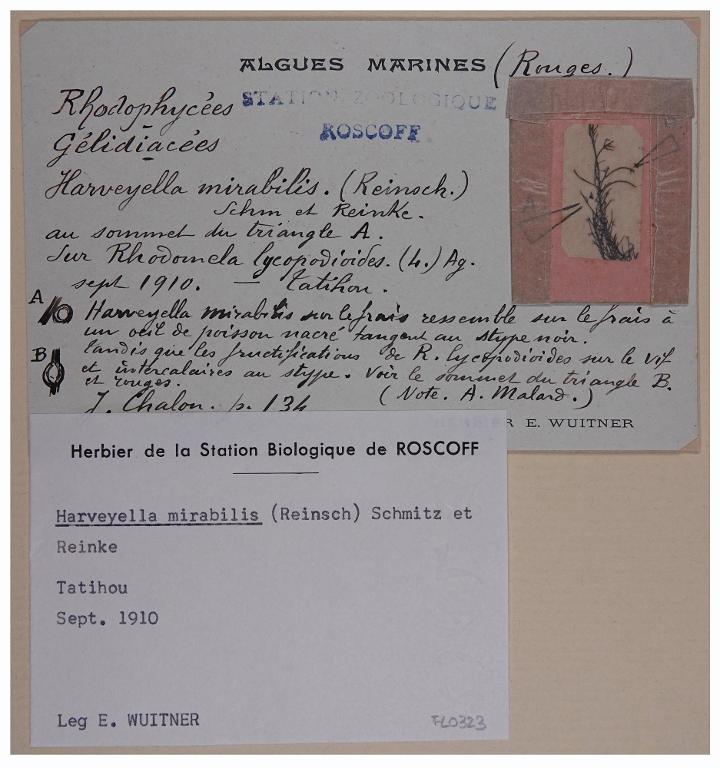 ALGUES MARINES (Rouges.)
STATION ZOOLOGIQUE
ROSCOFF
Rhodophycées
Gélidiacées
Harveyella mirabilis. (Reinsch.)
Schm et Reinke.
au sommet du triangle A.
Sur Rhodomela lycopodioides. (L.) Ag.
sept 1910. — Tatihou.
A
Harveyella mirabilis sur le frais ressemble sur le frais à
un oeil de poisson nacré tangent au stype noir.
B
Tandis que les fructifications de R. lycopodioides sur le vif
et intercalaires au stype. Voir le sommet du triangle B.
et rouges.
(Note. A. Malard.)
J. Chalon. p. 134
R E. WUITNER
Herbier de la Station Biologique de ROSCOFF
Harveyella mirabilis (Reinsch) Schmitz et
Reinke
Tatihou
Sept. 1910
Leg E. WUITNER
FL0323